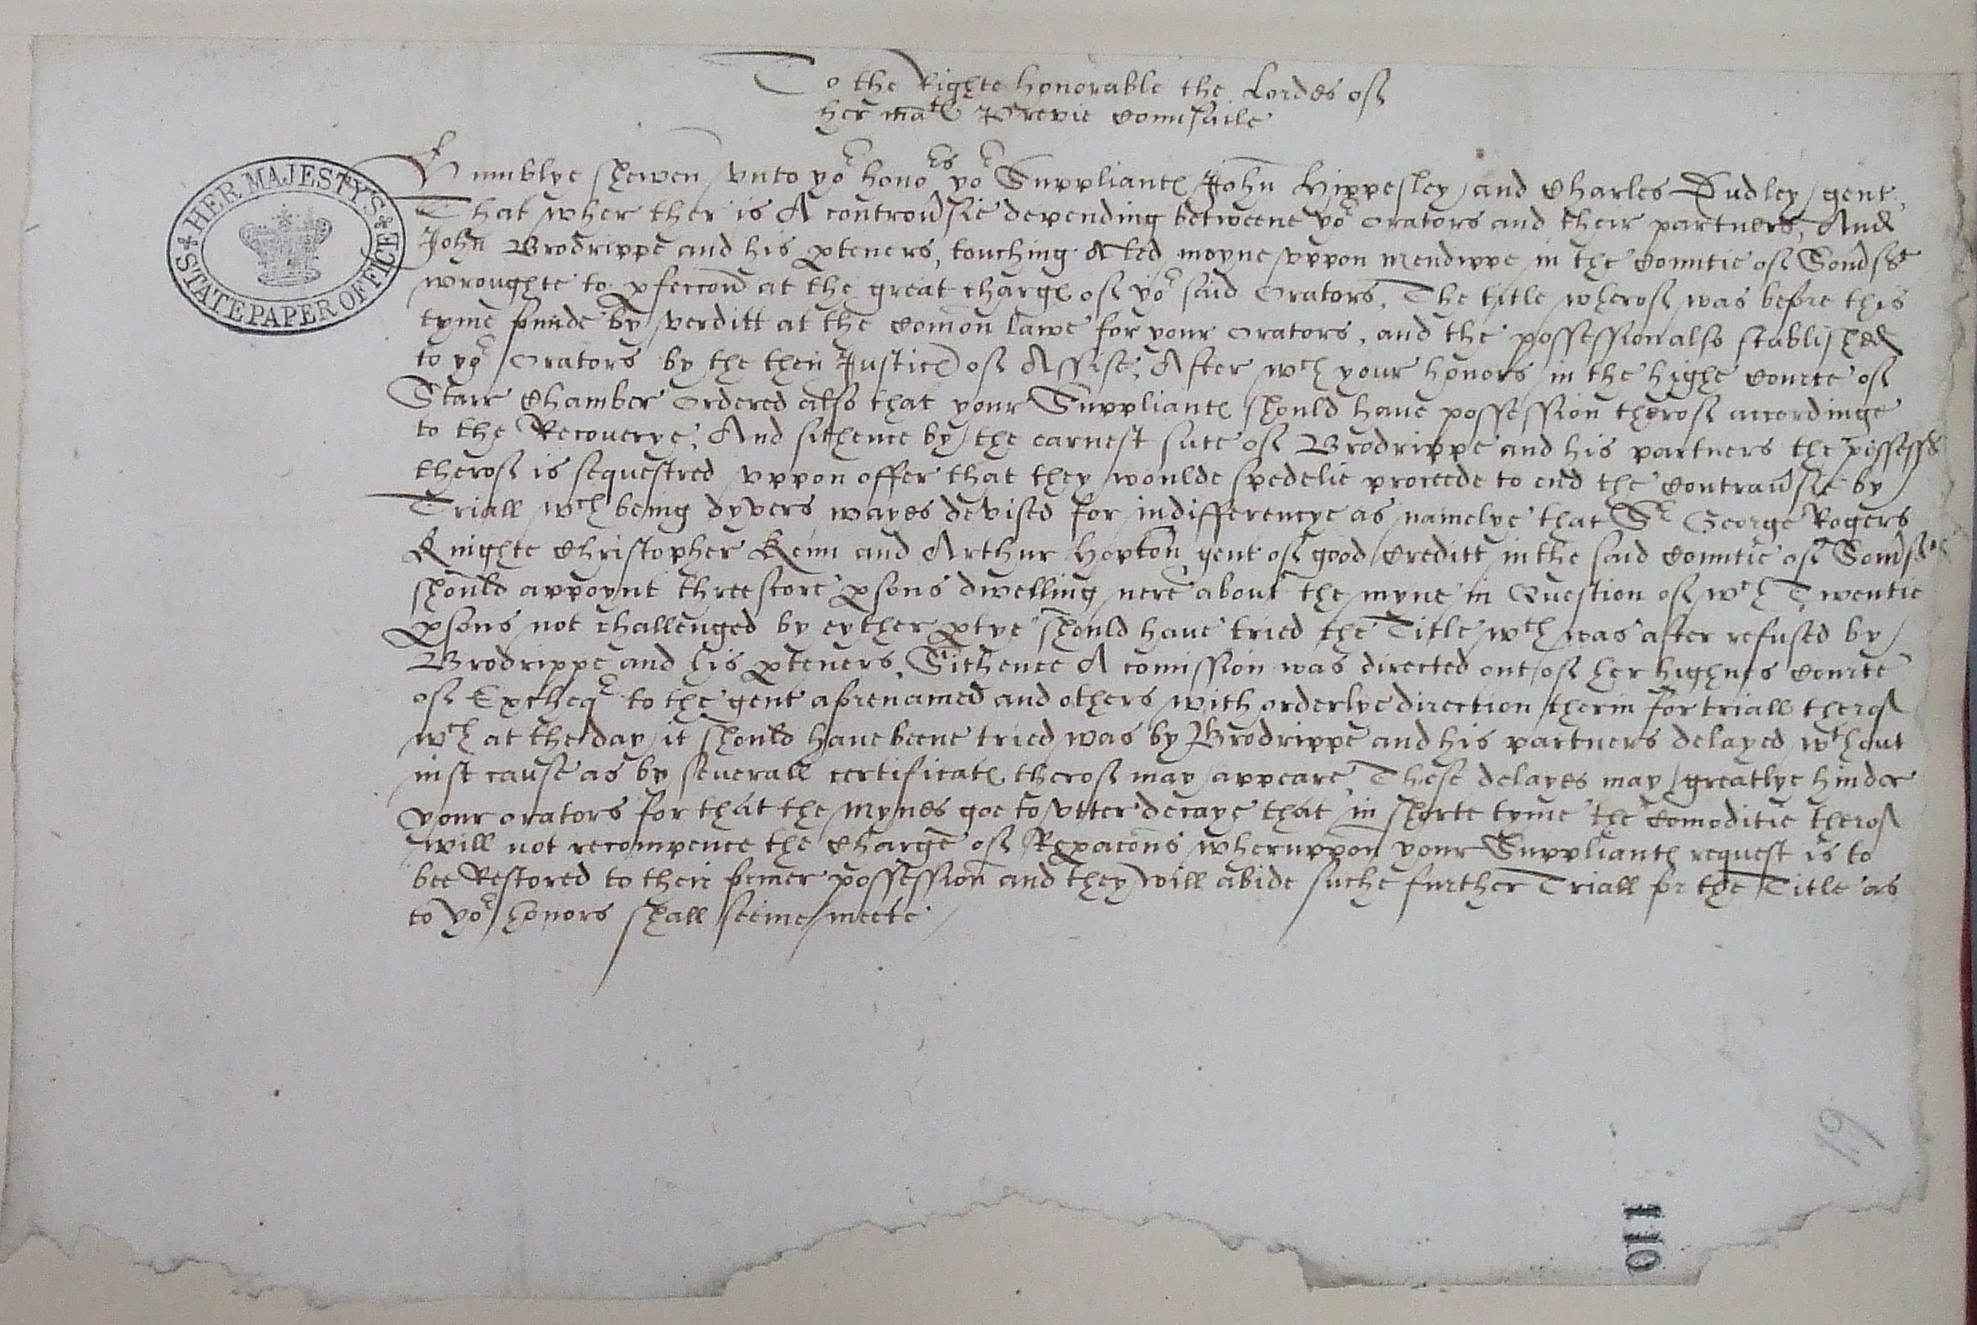 To the Righte honorable the Lordes of
her ma.tes Previe Counsaile
HER MAJESTY'S STATE PAPER OFFICE
Humblye shewen vnto yor honors yor Suppliantes John Hippesley and Charles Dudley gent.
That wher ther is A controũsie depending betweene yor Orators and their partners, And
John Brodrippe and his pteners, touching A led moyne vppon Mendippe in the Countie of Somᵭset
wroughte to pfeccoñ at the great charges of yor said Orators. The title wherof was before this
tyme founde by verditt at the Comon Lawe for your Orators, and the possession also stablished
to yor Orators by the then Justices of Assise, After wch your honors in the highe Courte of
Starr Chamber Ordered also that your Suppliantes should haue possession therof accordinge
to the Recouerye, And sithence by the earnest sute of Brodrippe and his partners the possess
therof is sequestred vppon offer that they woulde spedelie proceede to end the Contraũsie by
Triall wch being dyvers wayes devised for indifferencye as namelye that Sr George Rogers
Knighte Christopher Kenn and Arthur Hopton gent of good Creditt in the said Countie of Somᵭset
should appoynt threescore psons dwelling nere about the myne in Question of wch Twentie
psons not challenged by eyther ptye should haue tried the Title wch was after refused by
Brodrippe and his pteners. Sithence A comission was directed out of her highnes Courte
of Excheqr to the gent aforenamed and others with orderlye direction therin for triall therof
wch at the day it should haue beene tried was by Brodrippe and his partners delayed wthout
iust cause as by seuerall certificates therof may appeare, These delayes may greatlye hinder
your orators for that the mynes goe to vtter decaye that in shorte tyme the Comoditie therof
will not recompence the Charge of Repacõns wheruppon your Suppliantes request is to
bee Restored to their former possession and they will abide suche further Triall for the Title as
to yor honors shall seeme meete.
19
110